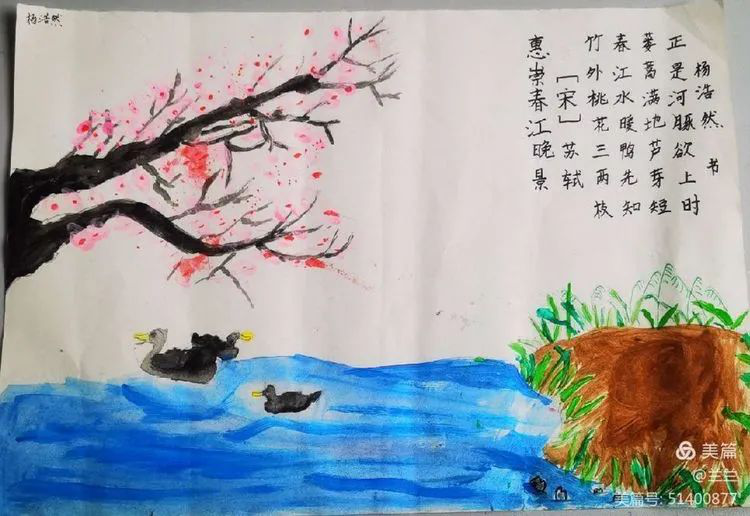 杨浩然
惠崇春江晚景
［宋］苏轼
竹外桃花三两枝
春江水暖鸭先知
蒌蒿满地芦芽短
正是河豚欲上时
杨浩然 书
美篇
@兰兰
美篇号: 51400877